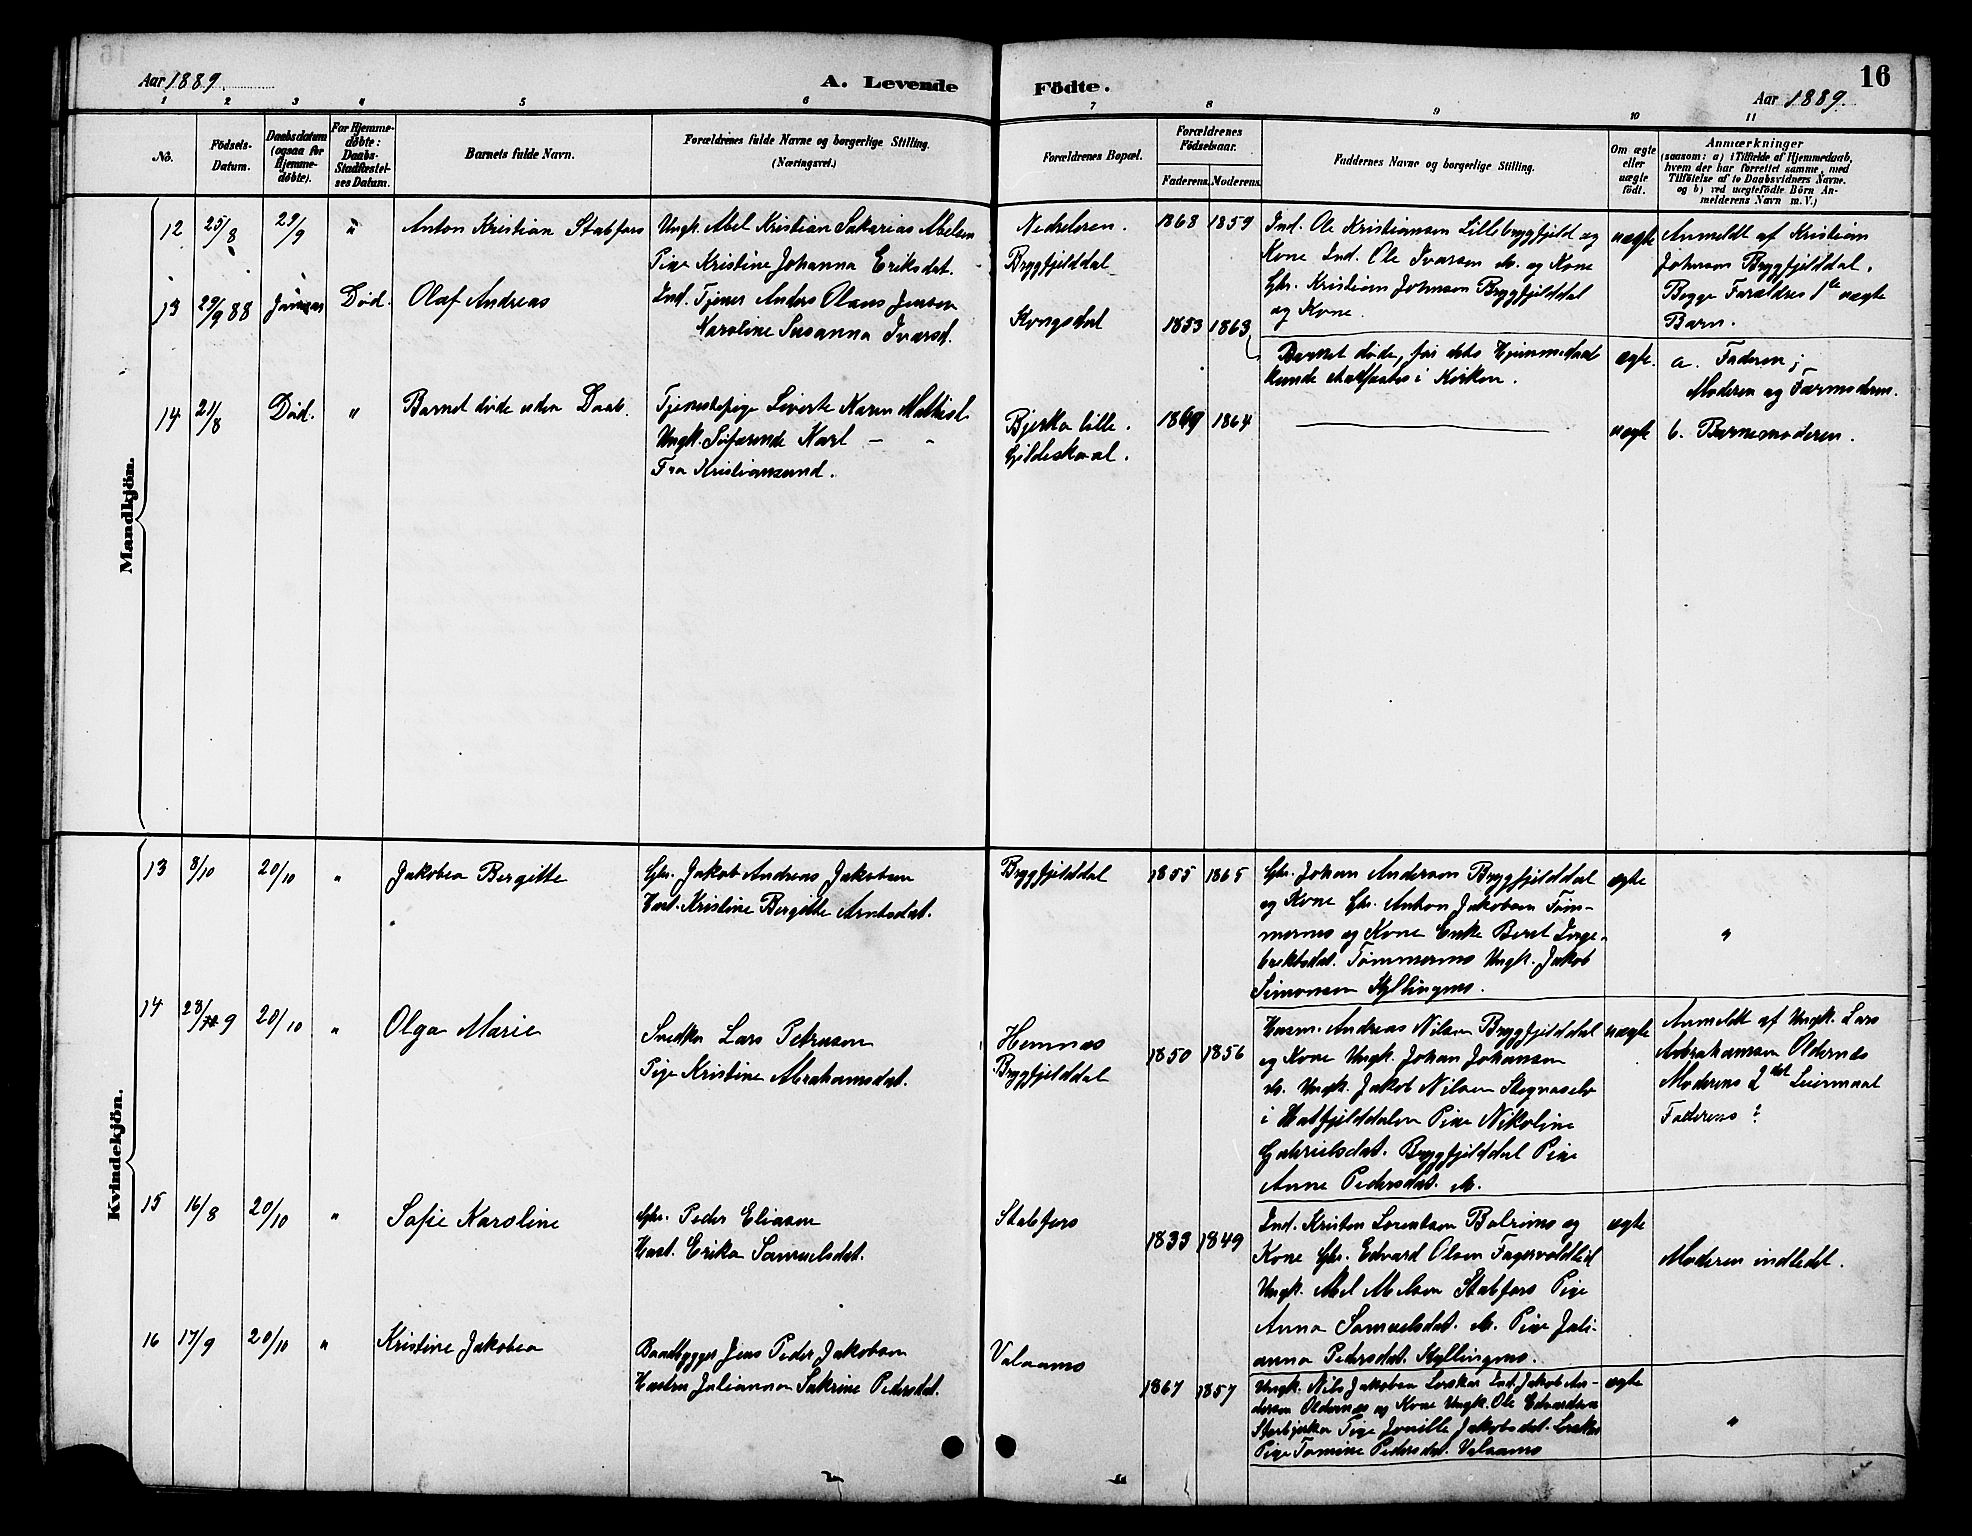 Aar 1889.
A. Levende
Födte.
16
Aar 1889.
1 2 3 4 5 6 7 8 9 10 11
No.
Födsels-
Datum.
Daabsdatum
(ogsaa for
Hjemme-
døbte).
For Hjemme-
døbte:
Daabs-
Stadfæstel-
ses Datum.
Barnets fulde Navn.
Forældrenes fulde Navne og borgerlige Stilling.
(Næringsvei.)
Forældrenes Bopæl.
Forældrenes
Fødselsaar.
Faderens. Moderens.
Faddernes Navne og borgerlige Stilling.
Om ægte
eller
uægte
født.
Anmærkninger
(saasom: a) i Tilfælde af Hjemmedaab,
hvem der har forrettet samme, med
Tilføielse af to Daabsvidners Navne.
og b) ved uægtefødte Börn An-
melderens Navn m. V.)
Mandkjön.
12 25/8 29/9 " Anton Kristian Stabfors
Ungk. Abel Kristian Sakarias Abelsen
Pige Kristine Johanna Eriksdat.
Bryggfjelddal
1868 1859
Ind. Ole Kristiansen Lillebryggfjeld og
Kone Ind. Ole Ivarsen ds. og Kone
Gbr. Kristian Johnsen Bryggfjelddal
og Kone.
uægte
Anmeldt af Kristian
Johnsen Bryggfjelddal.
Begge Forældres 1ste uægte
Barn.
13 29/9 88 Januar Død. Olaf Andreas
Ind. Tjener Anders Olaus Jensen
Karoline Susanna Ivarsd.
Kongsdal
1853 1863
Barnet døde, før dets Hjemmedaab
kunde stadfæstes i Kirken.
ægte.
a. Faderen;
Moderen og Farmoderen.
14 21/8 Død. " Barnet døde uden Daab.
Tjenestepige Siverte Karen Mathisd.
Ungk. Søfarende Karl — "
Fra Kristiansund.
Bjerka lille.
Gildeskaal.
1864
uægte
b. Barnemoderen.
Kvindekjön.
13 8/10 20/10 " Jakobea Bergitte
Gbr. Jakob Andreas Jakobsen
Hust. Kristine Bergitte Arntsdat.
Bryggfjelddal
1855 1865
Gbr. Johan Anderson Bryggfjelddal
og Kone Gbr. Anton Jakobsen Tøm-
mernes og Kone Enke Beret Inge-
brektsdat. Tømmernes Ungk. Jakob
Simonsen Kyllingnes.
ægte
"
14 28/9 20/10 " Olga Marie
Snedker Lars Petersson
Pige Kristine Abrahamsdat.
Hemnæs
Bryggfjelddal
1850 1856
Husm. Andreas Nilsen Bryggfjelddal
og Kone Ungk. Johan Johansen
ds. Ungk. Jakob Nilsen
i Hatfjelddalen Pige Nikoline
Gabrielsdat. Bryggfjelddal Pige
Anne Pedersdat. ds.
uægte
Anmeldt af Ungk. Lars
Abrahamsen Oldernæs
Moderens 2det Leiermaal
Faderens ?
15 16/8 20/10 " Sofie Karoline
Gbr. Peder Eliasen
Hust. Erika Samuelsdat.
Stabfors
1833 1849
Ind. Kristen Lorentsen Bolrimo og
Kone Gbr. Edvard Olsen Fagervoldlid
Ungk. Abel Abelsen Stabfors Pige
Anna Samuelsdat. ds. Pige Juli-
anna Pedersdat. Kyllingnes.
ægte
Moderen indledet.
16 17/9 20/10 " Kristine Jakobea
Baadbygger Jens Peder Jakobsen
Hustru Julianna Sakrine Pedersdat.
Valaanes
1867 1857
Ungk. Nils Jakobsen Leerskar Ind. Jakob An-
dersen Oldernæs og Kone Ungk. Ole Edvardsen
Storbjerka Pige Jakobsdat.
Pige Tomine Pedersdat. Valaanes
ægte
"